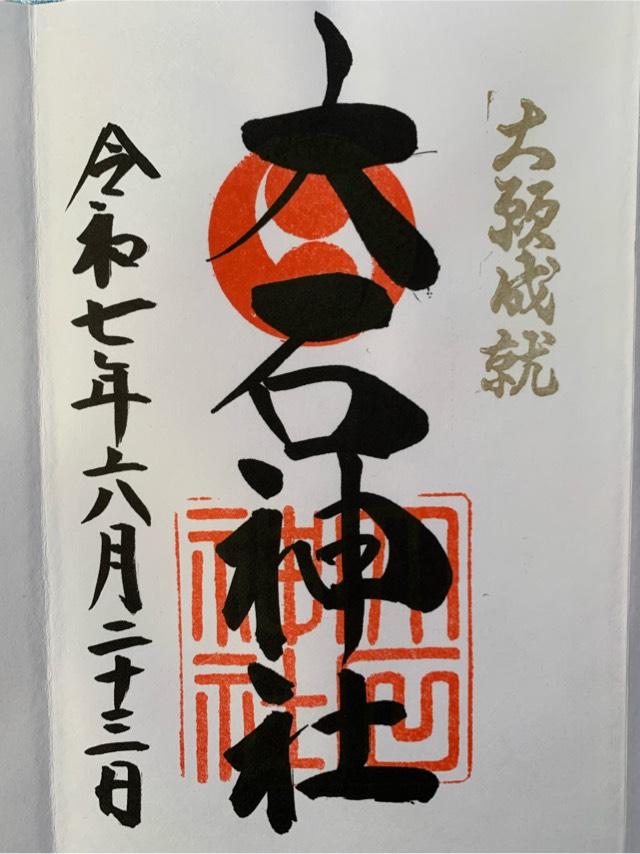 大願成就
大石神社
大石神社
令和七年六月二十三日